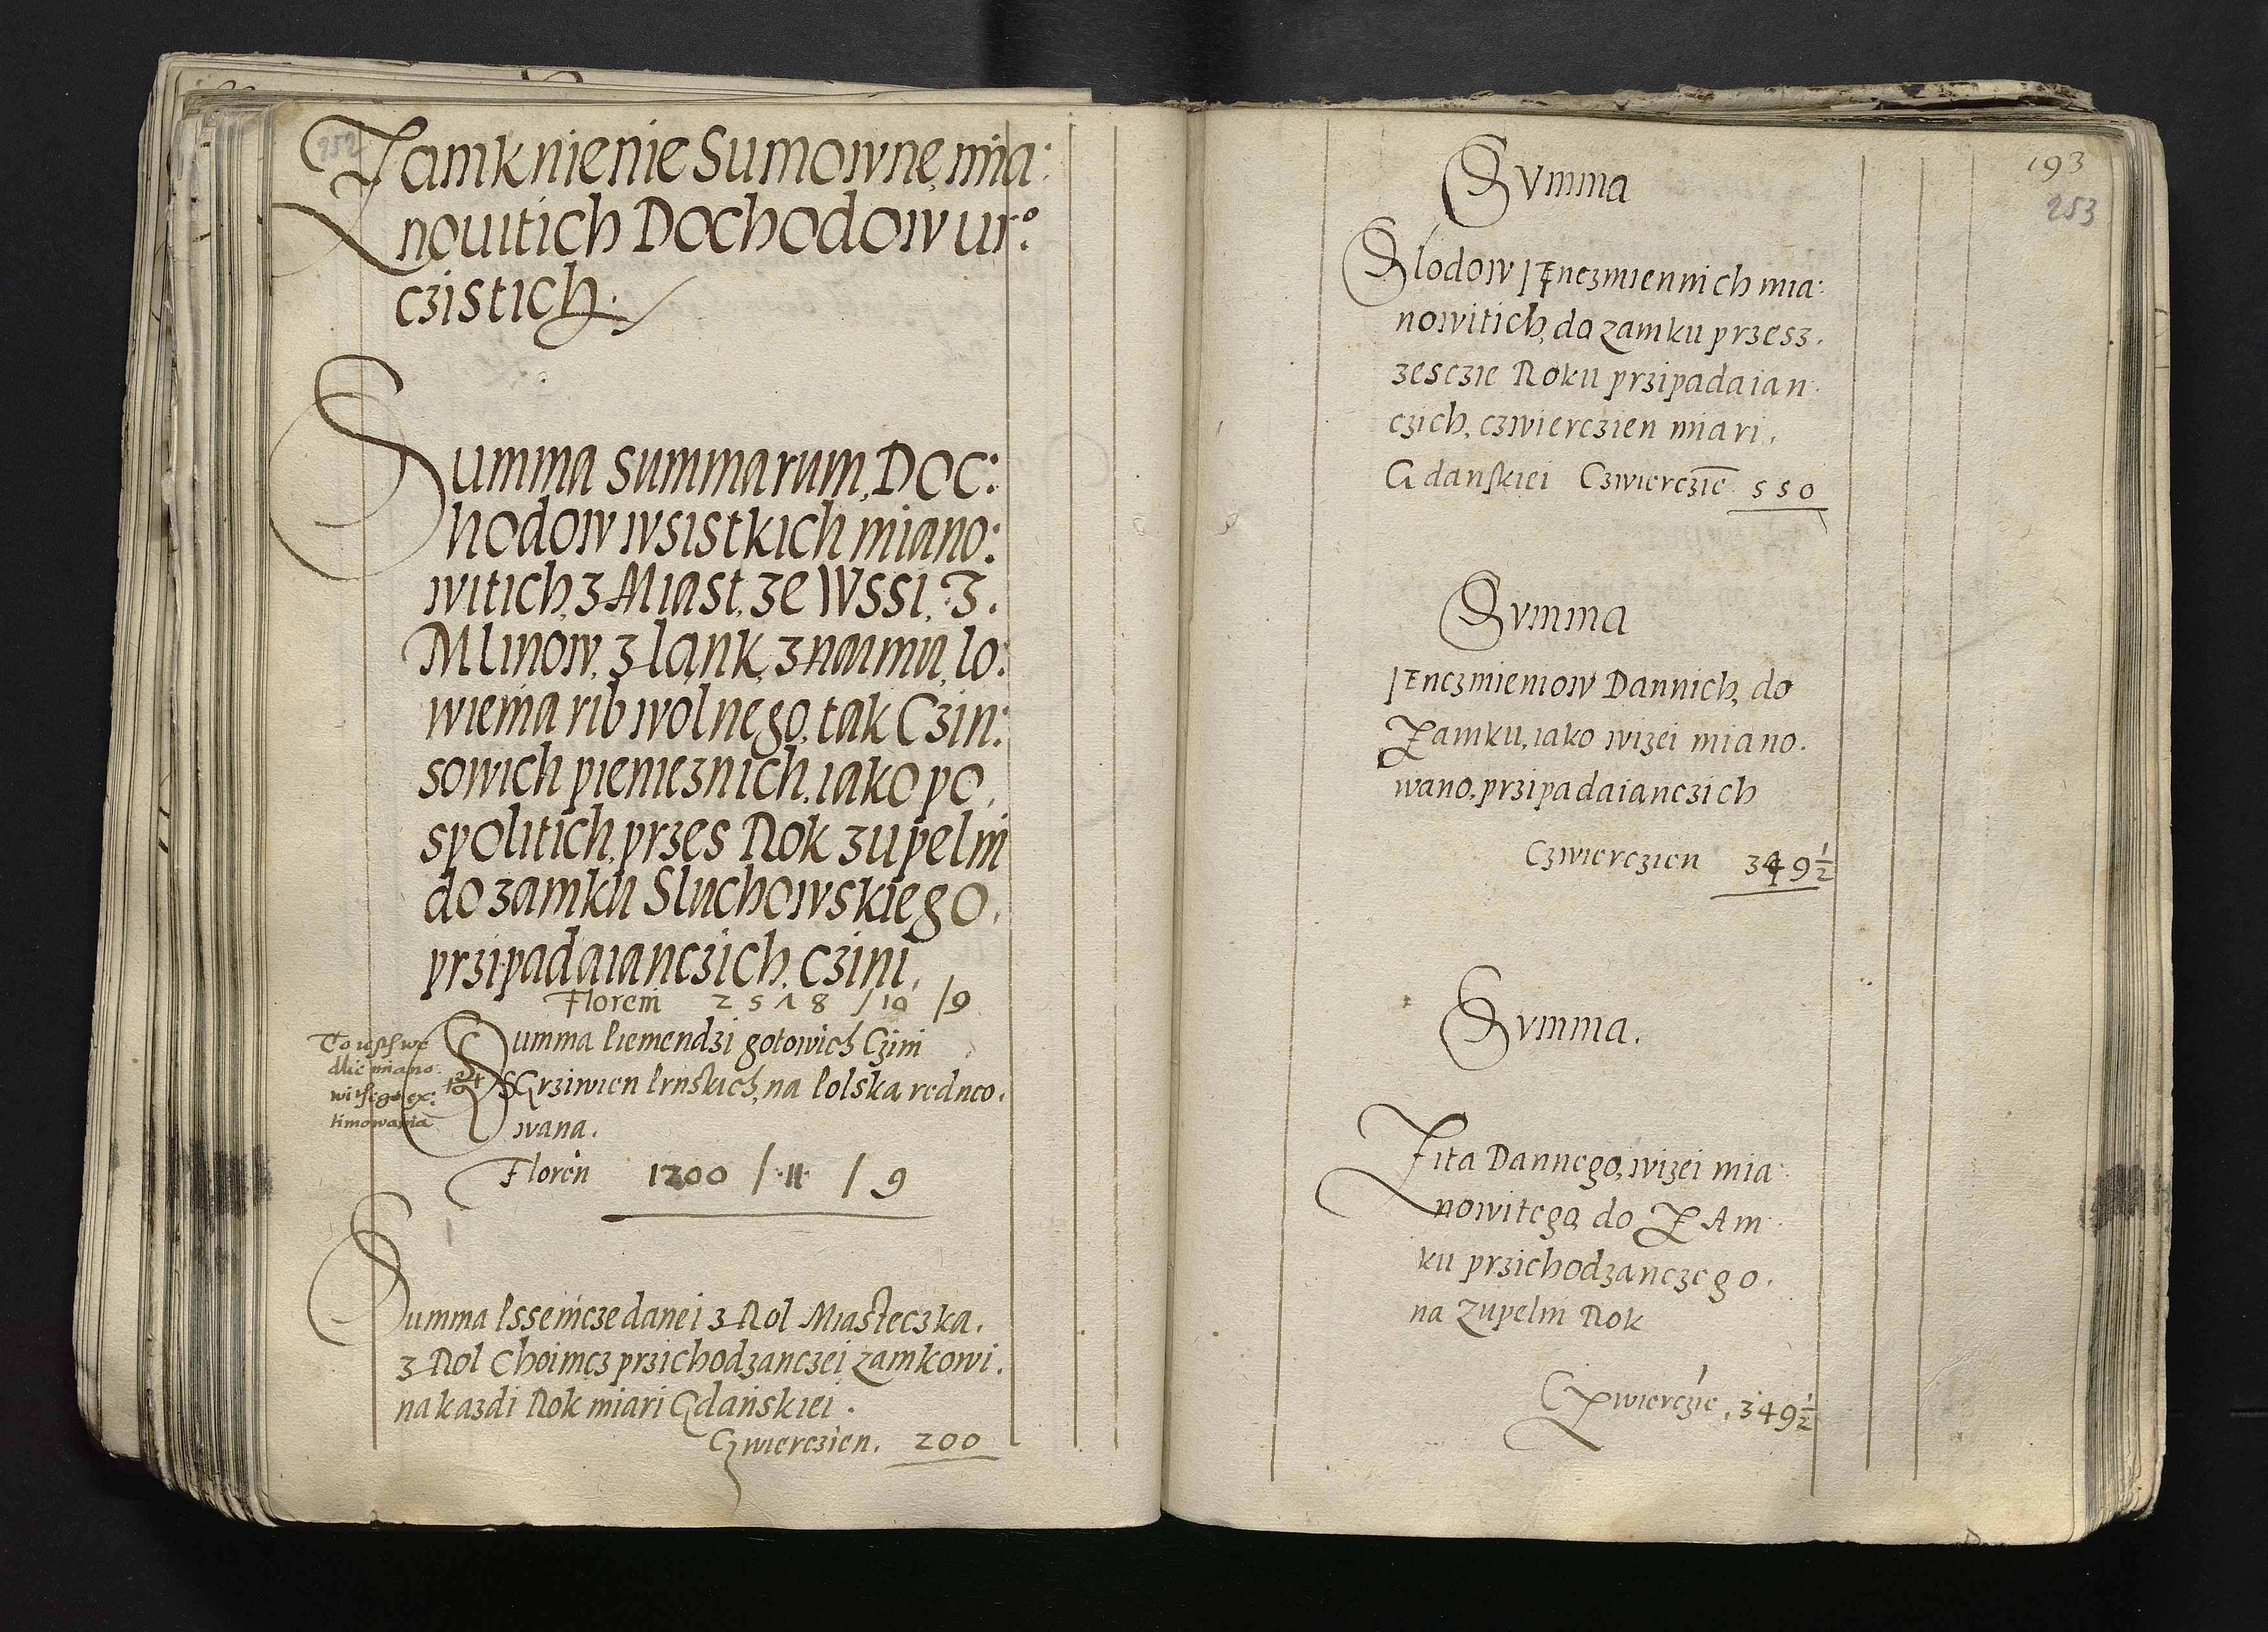 252
Zamknienie Sumowne, mia:
nouitich Dochodow ur:o
czistich.
Summa summarum, Doc:
hodow wsistkich miano:
witich, z Miast, ze Wssi, z.
Mlinow, z lank, z naimu, lo:
wienia rib wolnego, tak Czin:
sowich pienieznich, iako po,
spolitich, przes Rok zupelni
do zamku Sluchowskiego,
przipadaianczich, czini,
Floreni 2518 / 10 / 9
Summa Piemendzi gotowich Czini
Grziwien Pruskich, na Polska reduco.
wana.
To iest we
dlie miano
witego ex:
timowania
Floren 1200 / 11 / 9
Summa Pssenicze danei z Rol Miasteczka,
z Rol Choinicz przichodzanczei zamkowi,
na kazdi Rok miari Gdańskiei.
Czwierczien. 200
193
253
Summa
Slodow Jenczmiennich mia:
nowitich, do zamku przesz,
zesczie Roku przipadaian
czich, czwierczien miari,
Gdanskiei Czwierczie 550
Summa
Jenczmieniow Dannich, do
Zamku, iako wizei miano.
wano, przipadaianczich
Czwierczien 349 1/2
Summa.
Zita Dannego, wizei mia
nowitego do ZAm
ku przichodzanczego,
na zupelni Rok
Czwierczie, 349 1/2